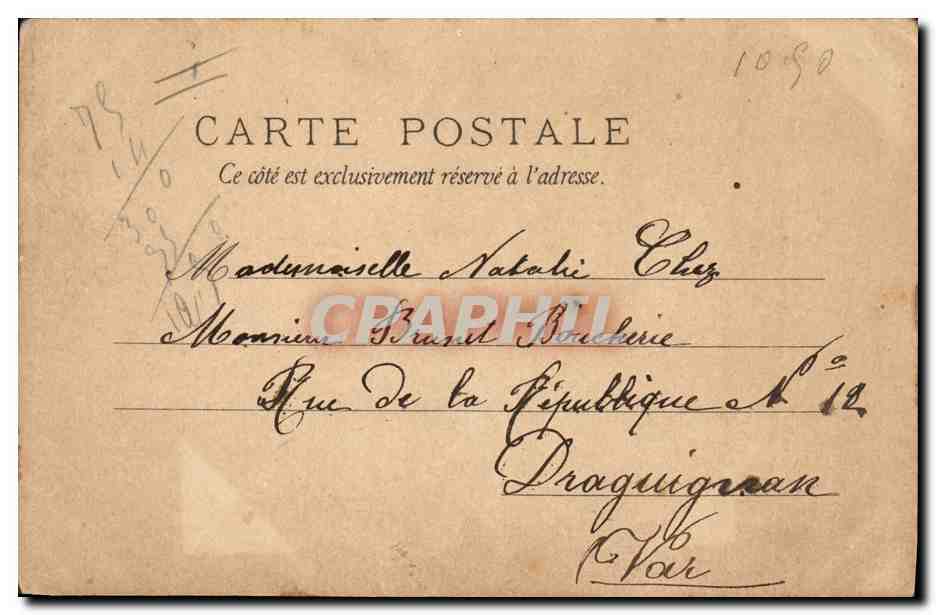 1090
75
14
0
CARTE POSTALE
Ce côté est exclusivement réservé à l'adresse.
Mademoiselle Natalie Chez
CRAPHTI
Monsieur Brunet Boucherie
Rue de la République Nº 12
Draguignan
(Var